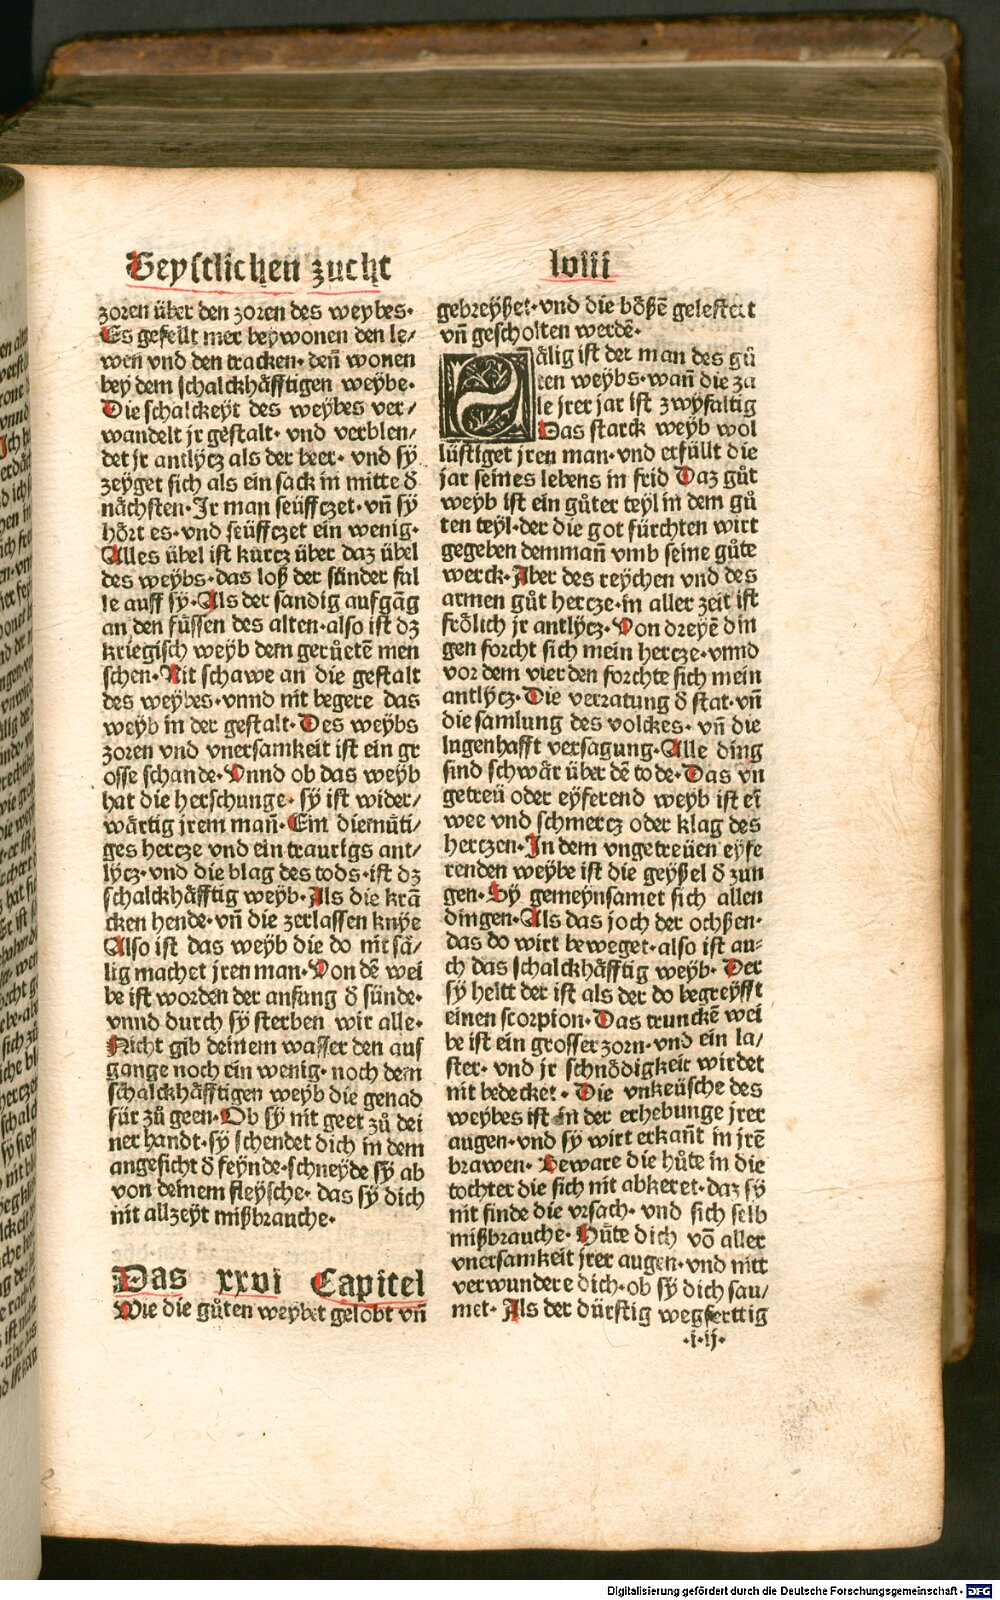 Geystlichen zucht
lviii
zoren über den zoren des weybes·
Es gefellt mer beywonen den le/
wen vnd den tracken· deñ wonen
bey dem schalckhäfftigen weybe·
Die schalckeyt des weybes ver/
wandelt jr gestalt· vnd verblen/
det jr antlÿcz als der beer· vnd sÿ
zeÿget sich als ein sack in mitte d̄
nächsten· Jr man seüffczet· vñ sÿ
hört es· vnd seüffczet ein wenig·
Alles übel ist kurcz über daz übel
des weÿbs· das loß der sünder fal
le auff sÿ· Als der sandig aufgāg
an den füssen des alten· also ist dz
kriegisch weÿb dem gerůetē men
schen· Nit schawe an die gestalt
des weÿbes· vnnd nit begere das
weÿb in der gestalt· Des weÿbs
zoren vnd vnersamkeit ist ein gr
osse schande· Vnnd ob das weÿb
hat die herschunge· sÿ ist wider/
wärtig jrem mañ· Ein diemůti/
ges hercze vnd ein traurigs ant/
lÿcz· vnd die blag des tods· ist dz
schalckhäfftig weÿb· Als die krā
cken hende· vñ die zerlassen knÿe
Also ist das weÿb die do nit sä/
lig machet jren man· Von dē wei
be ist worden der anfang d̄ sünde·
vnnd durch sÿ sterben wir alle·
Nicht gib deinem wasser den aus
gange noch ein wenig· noch dem
schalckhäfftigen weÿb die genad
für zů geen· Ob sÿ nit geet zů dei
ner handt· sÿ schendet dich in dem
angesicht d̄ feÿnde· schneÿde sÿ ab
von deinem fleÿsche· das sÿ dich
nit allzeÿt mißbrauche·
Das xxvi Capitel
Wie die gůten weybet gelobt vñ
gebreÿßet· vnd die bößē gelestert
vñ gescholten werdē·
Sälig ist der man des gů
ten weÿbs· wañ die za
le jrer jar ist zwÿfaltig
Das starck weÿb wol
lüstiget jren man· vnd erfüllt die
jar seines lebens in frid Daz gůt
weÿb ist ein gůter teÿl in dem gů
ten teÿl· der die got fürchten wirt
gegeben demmañ vmb seine gůte
werck· Aber des reÿchen vnd des
armen gůt hercze· in aller zeit ist
frölich jr antlÿcz· Von dreÿē din
gen forcht sich mein hercze· vnnd
vor dem vierden forchte sich mein
antlÿcz· Die verratung d̄ stat· vñ
die samlung des volckes· vñ die
lugenhafft versagung· Alle ding
sind schwär über dē tode· Das vn
getreü oder eÿferend weÿb ist eī
wee vnd schmercz oder klag des
herczen· In dem vngetreüen eÿfe
renden weÿbe ist die geÿßel d̄ zun
gen· Sÿ gemeÿnsamet sich allen
dingen· Als das joch der ochßen·
das do wirt beweget· also ist au⸗
ch das schalckhäfftig weÿb· Der
sÿ heltt der ist als der do begreÿfft
einen scorpion· Das trunckē wei
be ist ein grosser zorn· vnd ein la/
ster· vnd jr schnödigkeit wirdet
nit bedecket· Die vnkeüsche des
weybes ist in der erhebunge jrer
augen· vnd sÿ wirt erkañt in jrē
brawen· Beware die hůte in die
tochter die sich nit abkeret· daz sÿ
nit finde die vrsach· vnd sich selb
mißbrauche· Hůte dich vō aller
vnersamkeit jrer augen· vnd nitt
verwundere dich· ob sÿ dich sau/
met· Als der dürstig wegferttig
·i·ij·
Digitalisierung gefördert durch die Deutsche Forschungsgemeinschaft - DFG